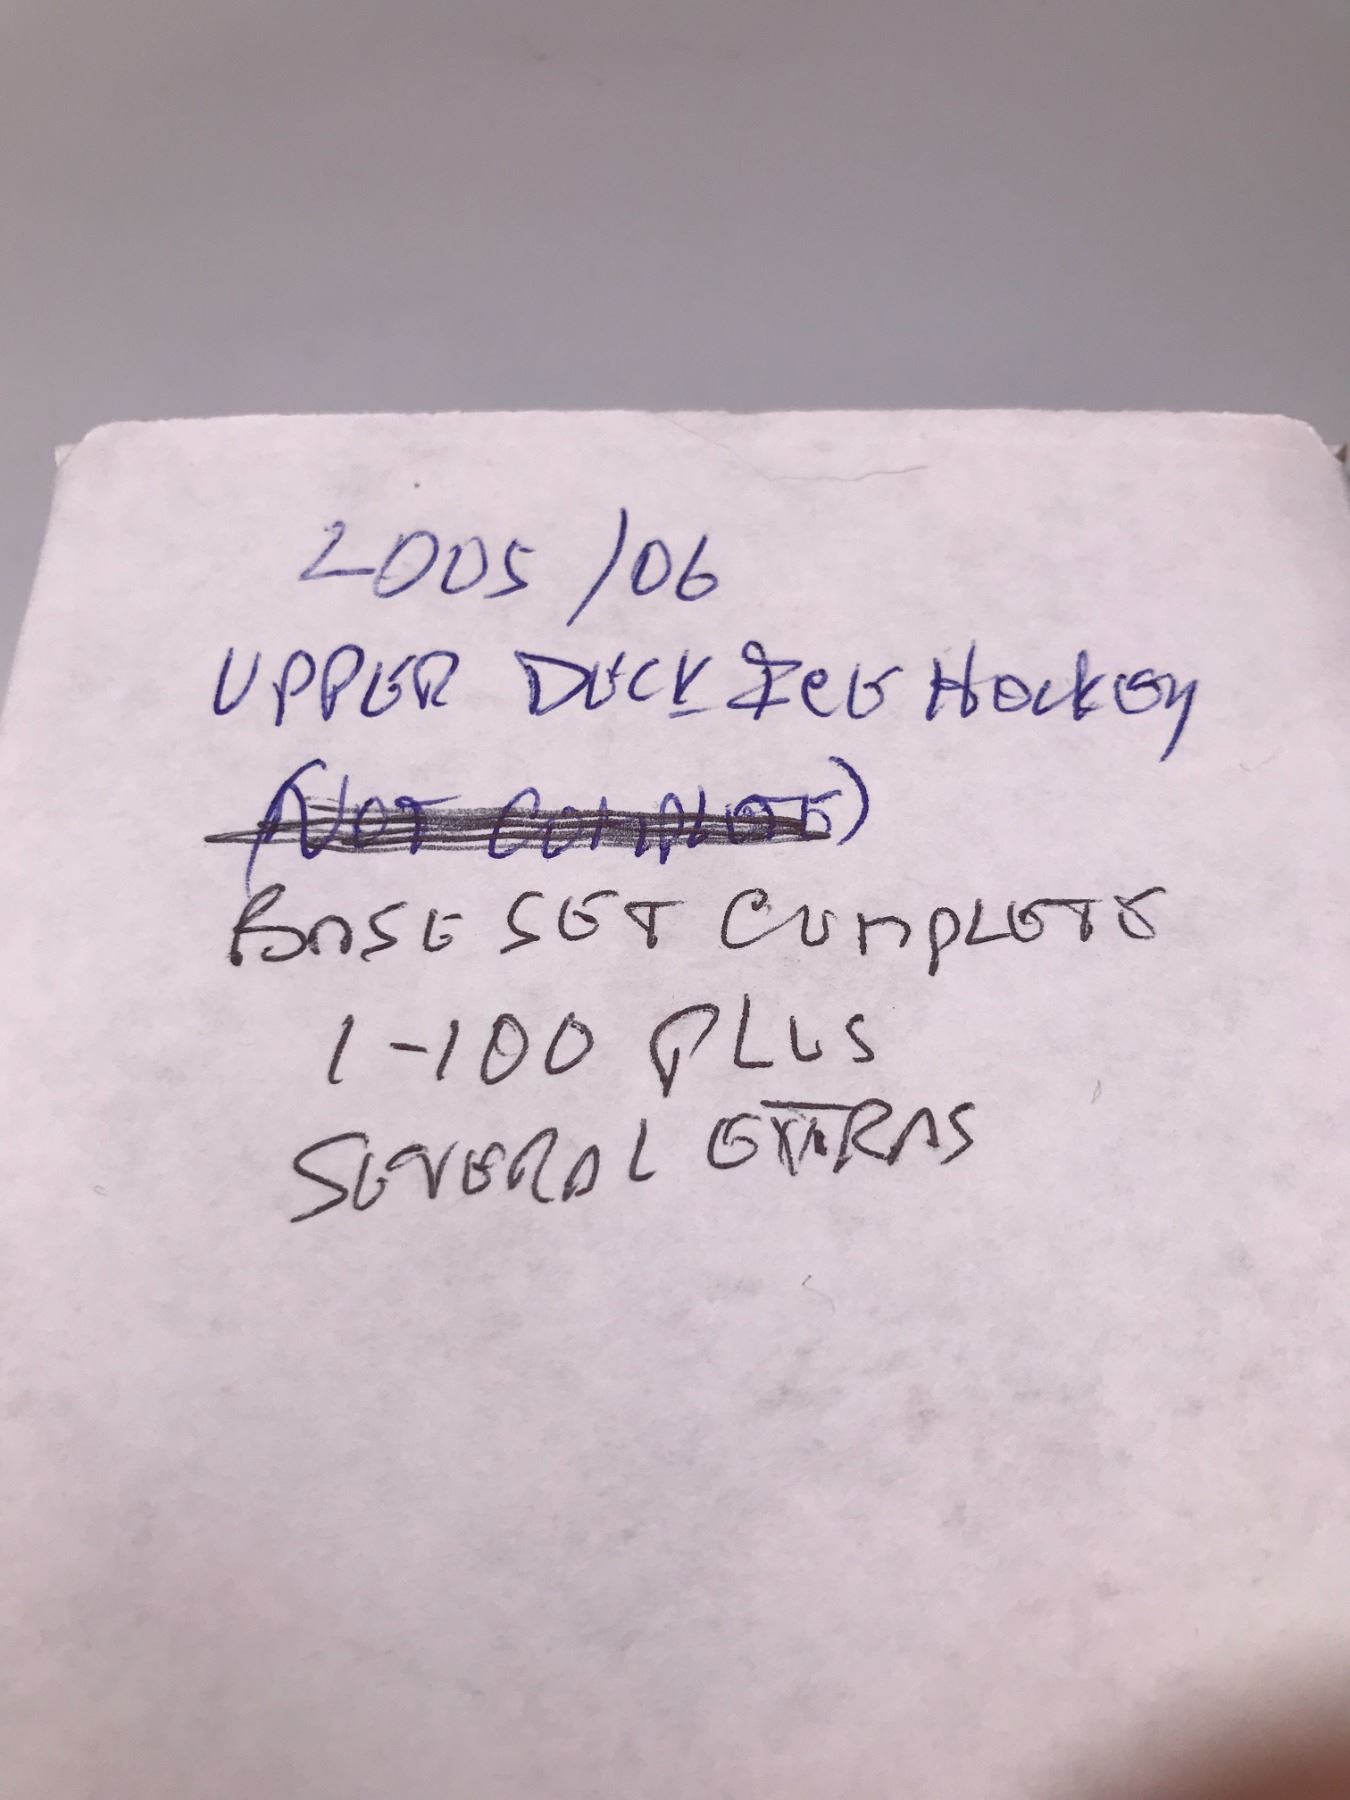 2005/06
UPPER DECK ICE HOCKEY
(NOT COMPLETE)
BASE SET COMPLETE
1-100 PLUS
SEVERAL EXTRAS